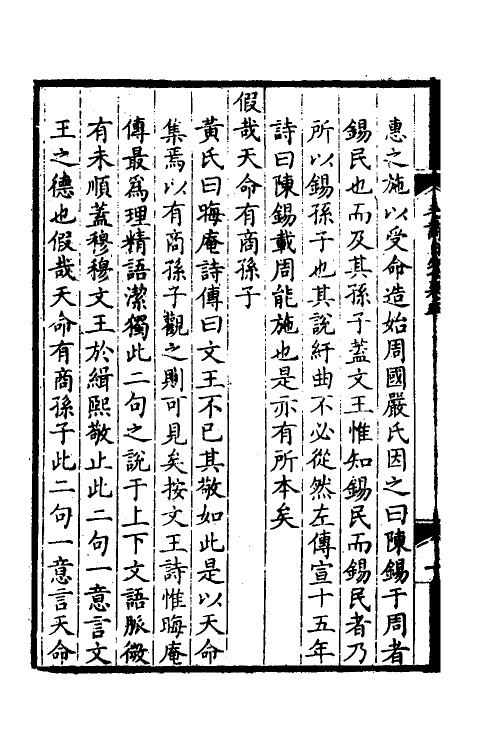 惠之施以受命造始周國嚴氏因之曰陳錫于周者
錫民也而及其孫子蓋文王惟知錫民而錫民者乃
所以錫孫子也其說紆曲不必從然左傳宣十五年
詩曰陳錫載周能施也是亦有所本矣
假哉天命有商孫子
黃氏曰晦庵詩傳曰文王不已其敬如此是以天命
集焉以有商孫子觀之則可見矣按文王詩惟晦庵
傳最爲理精語潔獨此二句之說于上下文語脈微
有未順蓋穆穆文王於緝熙敬止此二句一意言文
王之德也假哉天命有商孫子此二句一意言天命